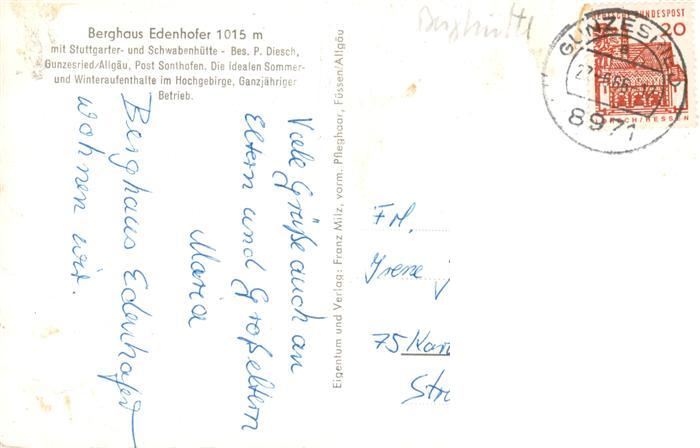 Berghaus Edenhofer 1015 m
mit Stuttgarter- und Schwabenhütte - Bes. P. Diesch,
Gunzesried/Allgäu, Post Sonthofen. Die idealen Sommer-
und Winteraufenthalte im Hochgebirge, Ganzjähriger
Betrieb.
Viele Grüße auch an
Eltern und Großeltern
Maria
Berghaus Edenhofer
wohnen wir.
Eigentum und Verlag: Franz Milz, vorm. Pfleghaar, Füssen/Allgäu
Berghütte
DEUTSCHE BUNDESPOST
20
LORSCH/HESSEN
GUNZESRIED
a
8971
Frl.
Irene
75 Kar
Str